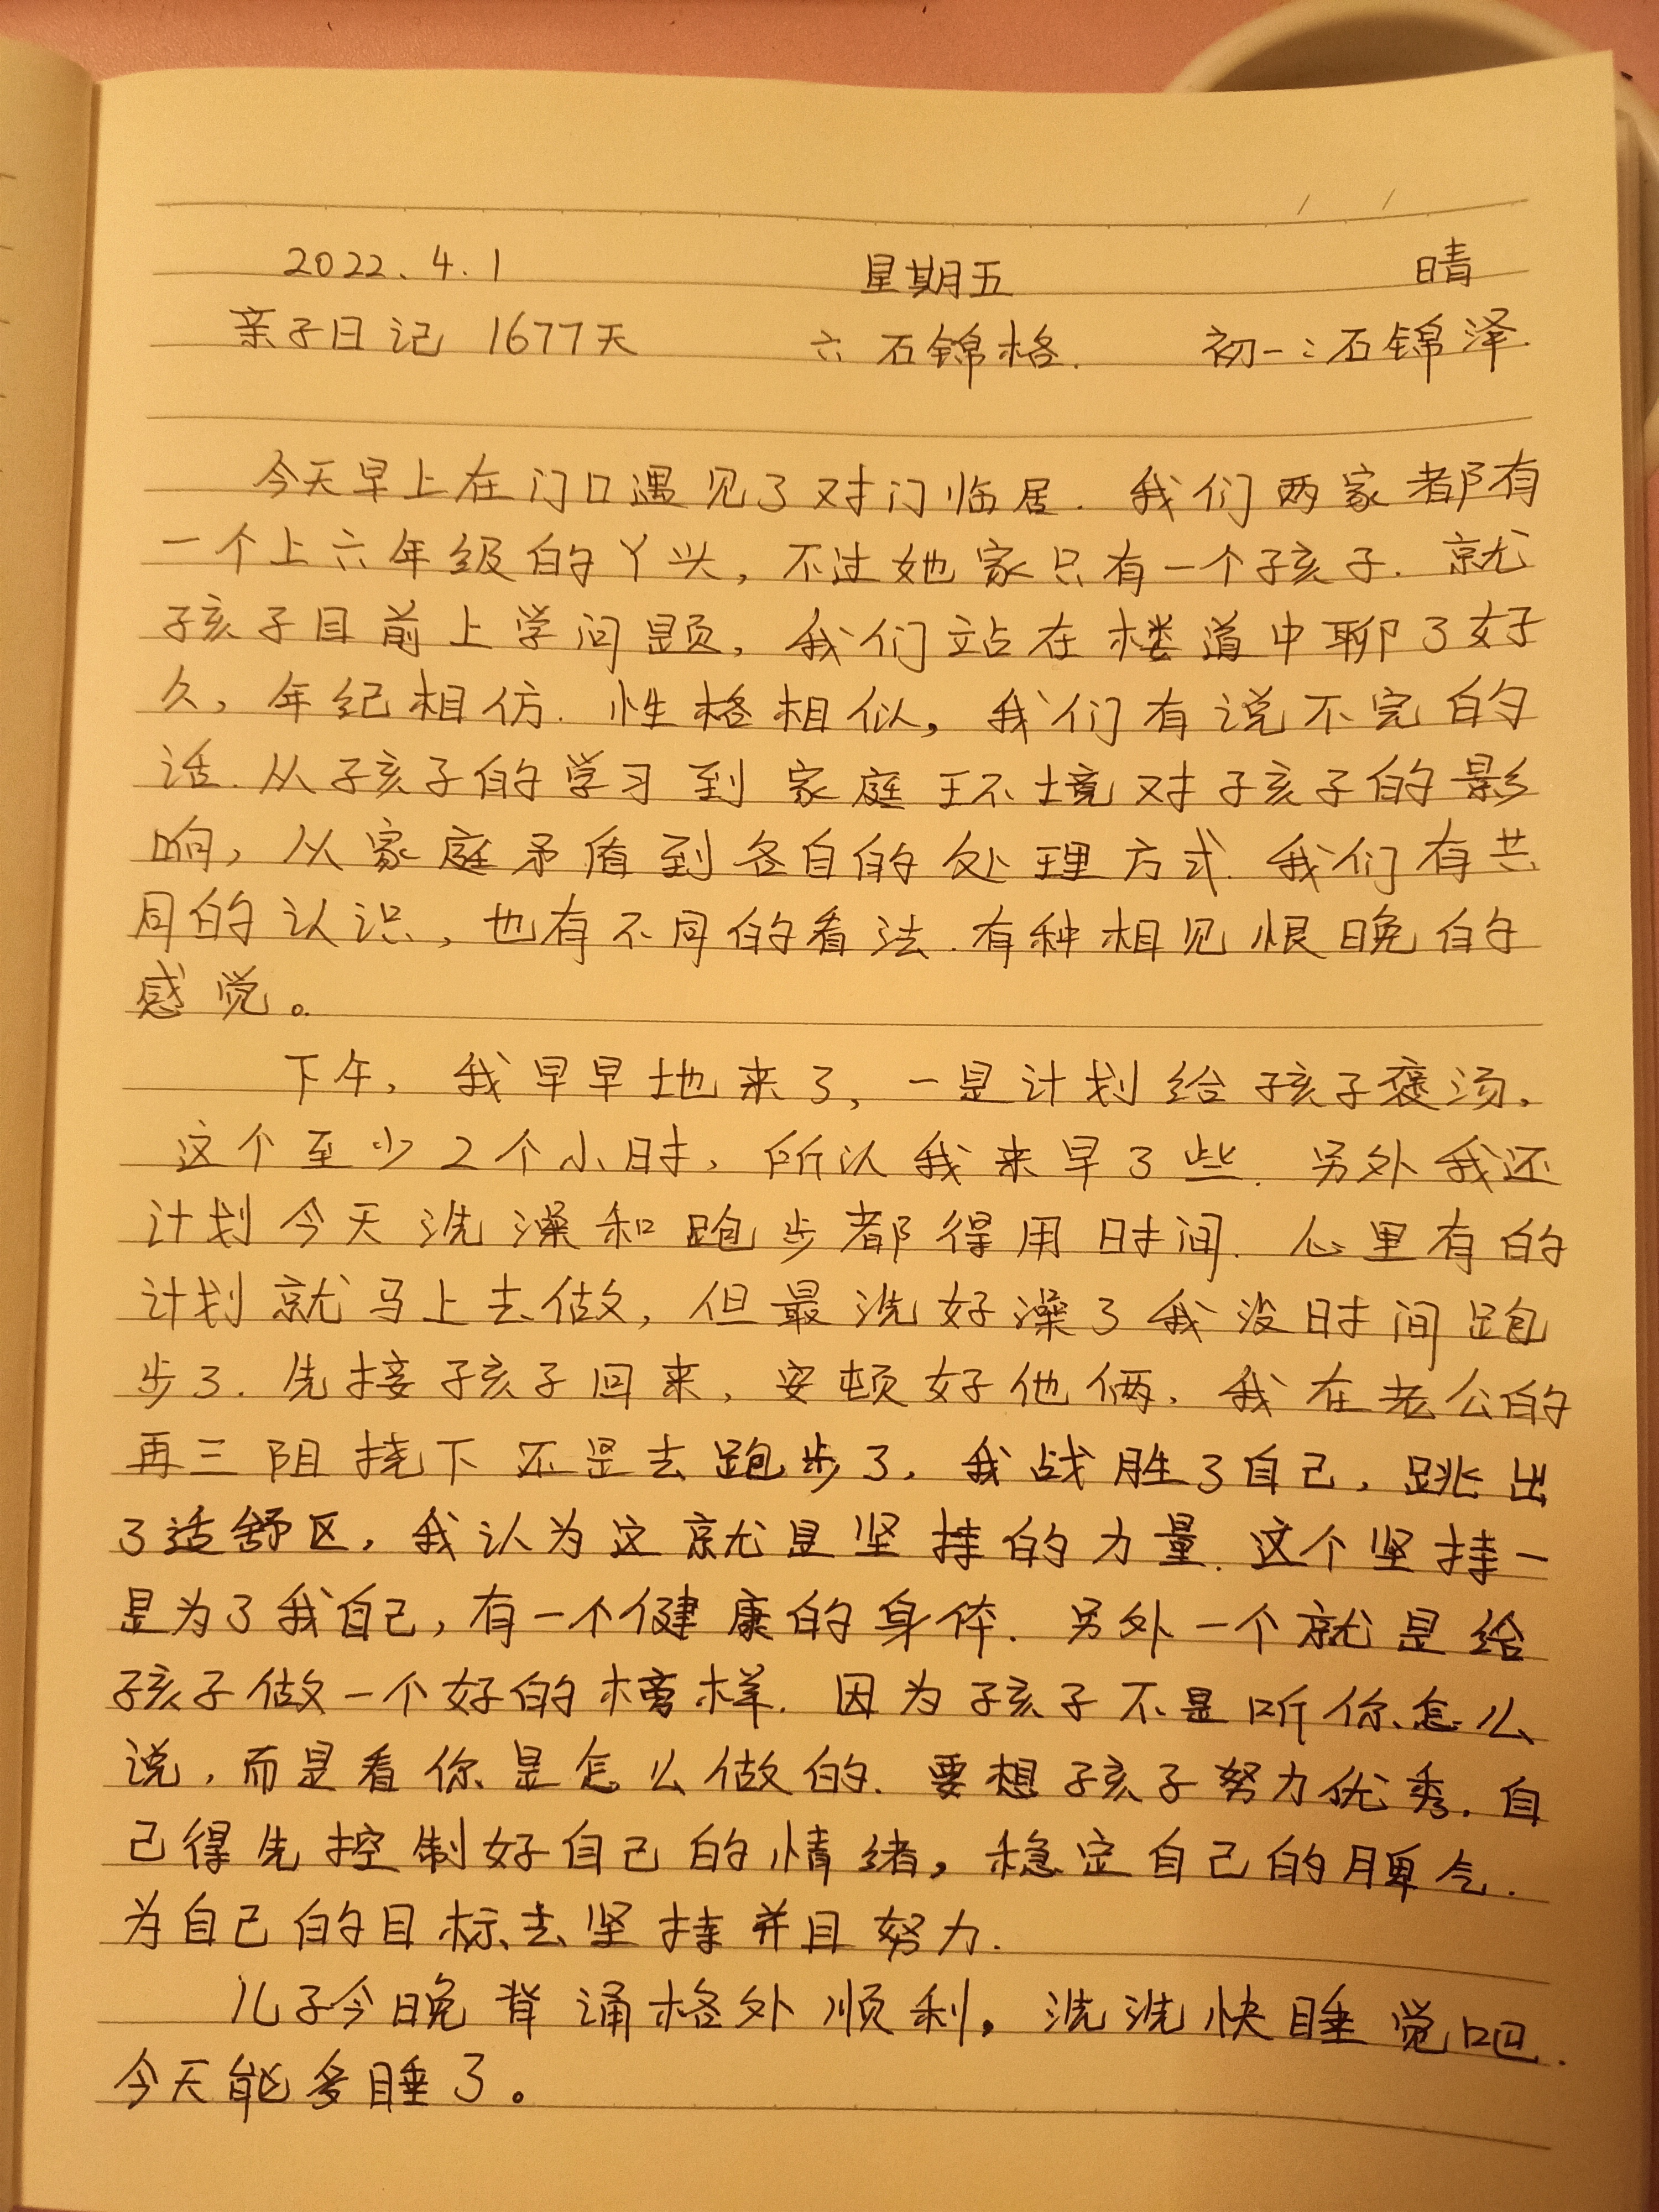 2022.4.1 星期五 晴
亲子日记 1677天 六 石锦格. 初一:石锦泽.
今天早上在门口遇见了对门临居.我们两家都有
一个上六年级的丫头,不过她家只有一个孩子.就
孩子目前上学问题,我们站在楼道中聊了好
久,年纪相仿.性格相似,我们有说不完的
话.从孩子的学习到家庭环境对孩子的影
响,从家庭矛盾到各自的处理方式.我们有共
同的认识,也有不同的看法.有种相见恨晚的
感觉。
下午,我早早地来了,一是计划给孩子褒汤,
这个至少2个小时,所以我来早了些.另外我还
计划今天洗澡和跑步都得用时间.心里有的
计划就马上去做,但最洗好澡了我没时间跑
步了.先接孩子回来,安顿好他俩,我在老公的
再三阻挠下还是去跑步了,我战胜了自己,跳出
了适舒区,我认为这就是坚持的力量.这个坚持一
是为了我自己,有一个健康的身体.另外一个就是给
孩子做一个好的榜样.因为孩子不是听你怎么
说,而是看你是怎么做的.要想孩子努力优秀.自
己得先控制好自己的情绪,稳定自己的脾气.
为自己的目标去坚持并且努力.
儿子今晚背诵格外顺利,洗洗快睡觉吧.
今天能多睡了。